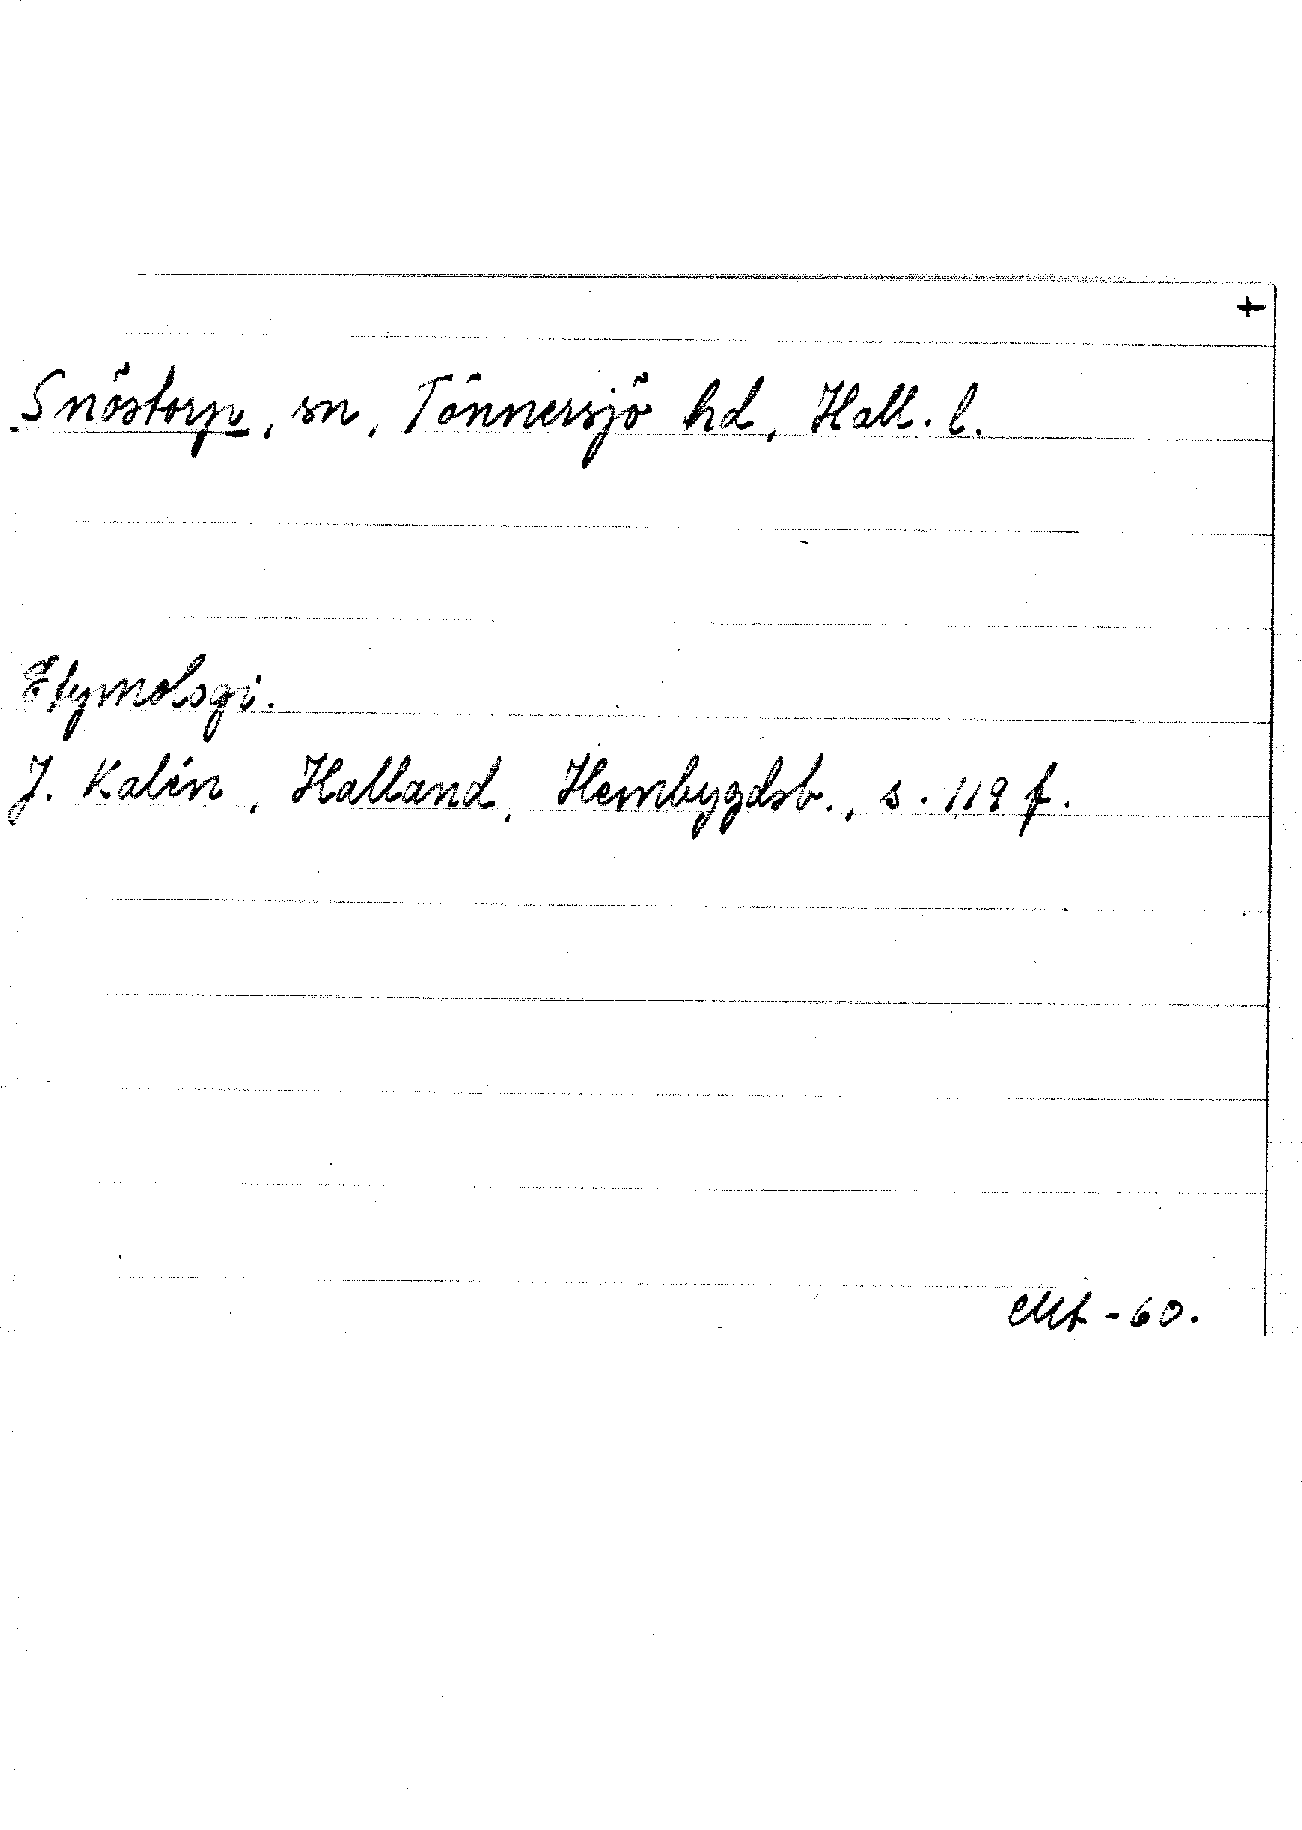 +
Snöstorp, sn, Tönnersjö hd, Hall. l.
Etymologi.
J. Kalén, Halland, Hembygdsb., s. 119 f.
-60.